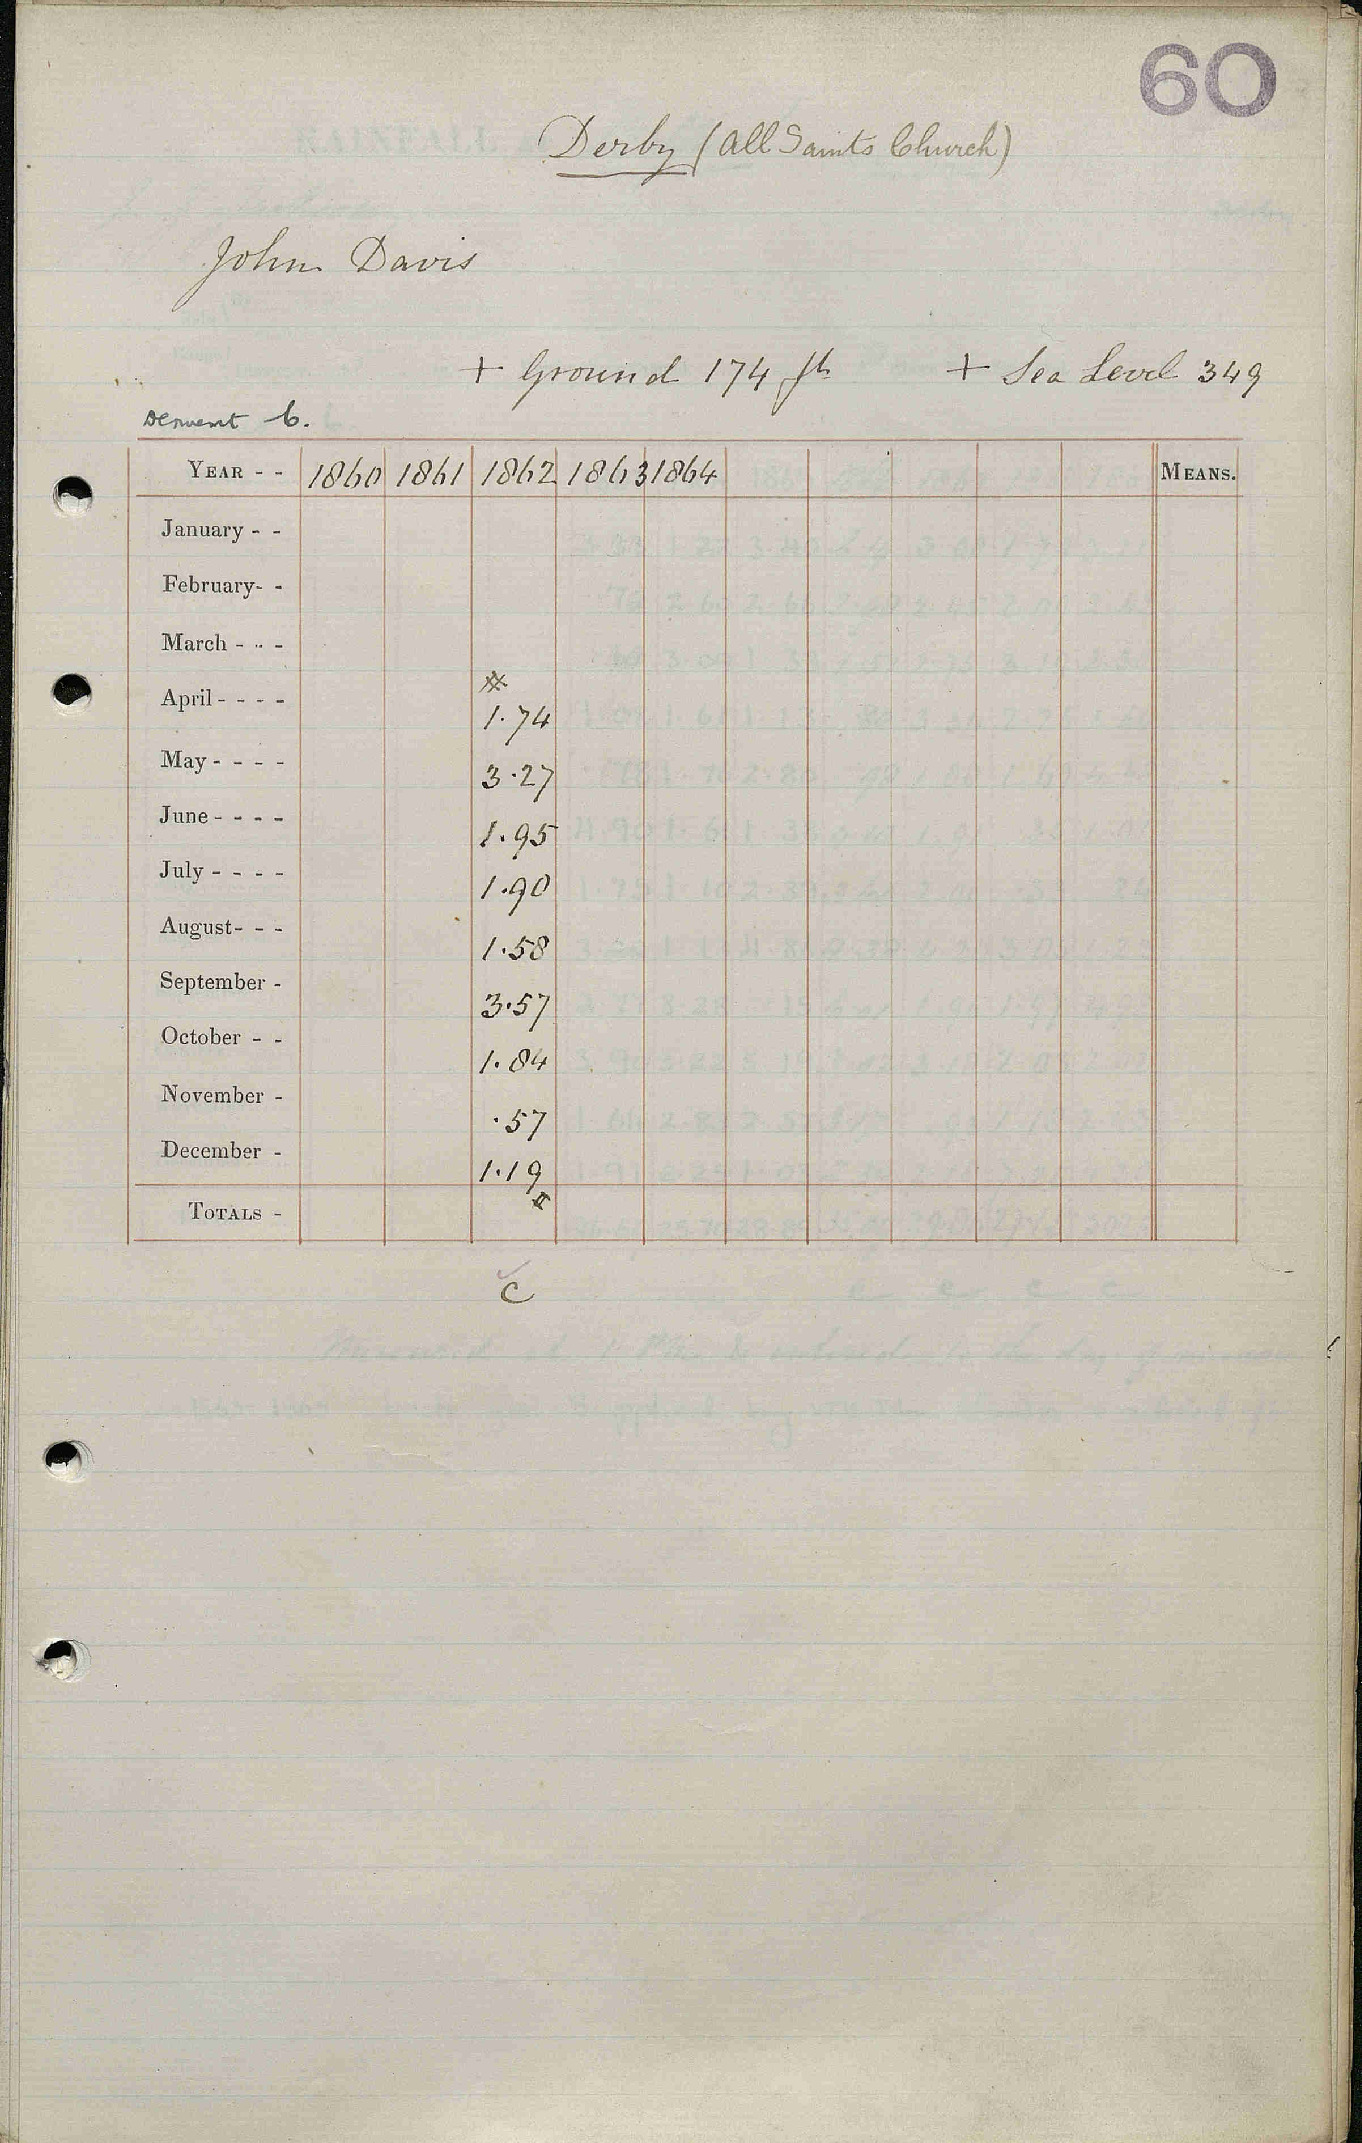 60
Derby (All Saints Church)
John Davis
+ Ground 174 ft + Sea Level 349
Derwent 6.
YEAR - - 1860 1861 1862 1863 1864 MEANS.
January - -
February- -
March - - -
April - - - - 1.74
May - - - - 3.27
June - - - - 1.95
July - - - - 1.90
August- - - 1.58
September - 3.57
October - - 1.84
November - .57
December - 1.19
TOTALS -
C